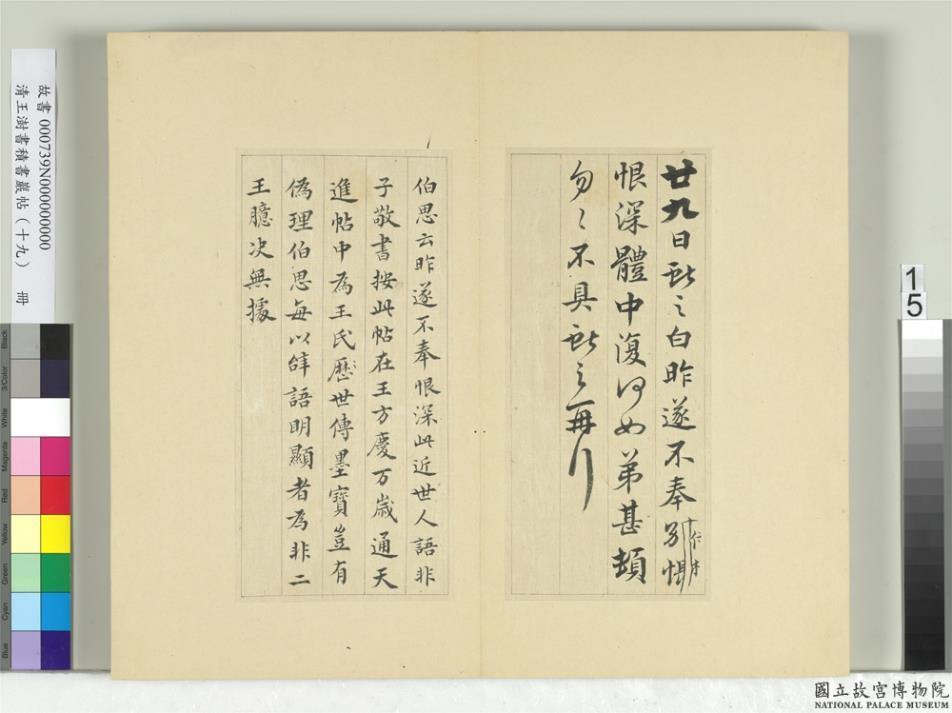 廿九日獻之白昨遂不奉別悵
恨深體中復何如弟甚頓
匆匆不具獻之再拜
伯思云昨遂不奉恨深此近世人語非
子敬書按此帖在王方慶万歲通天
進帖中為王氏歷世傳墨寶豈有
偽理伯思每以辞語明顯者為非二
王臆决無據
故書 000739N000000000
清王澍書積書巖帖（十九） 冊
15
Black
3/Color
White
Magenta
Red
Yellow
Green
Cyan
Blue
國立故宮博物院
NATIONAL PALACE MUSEUM